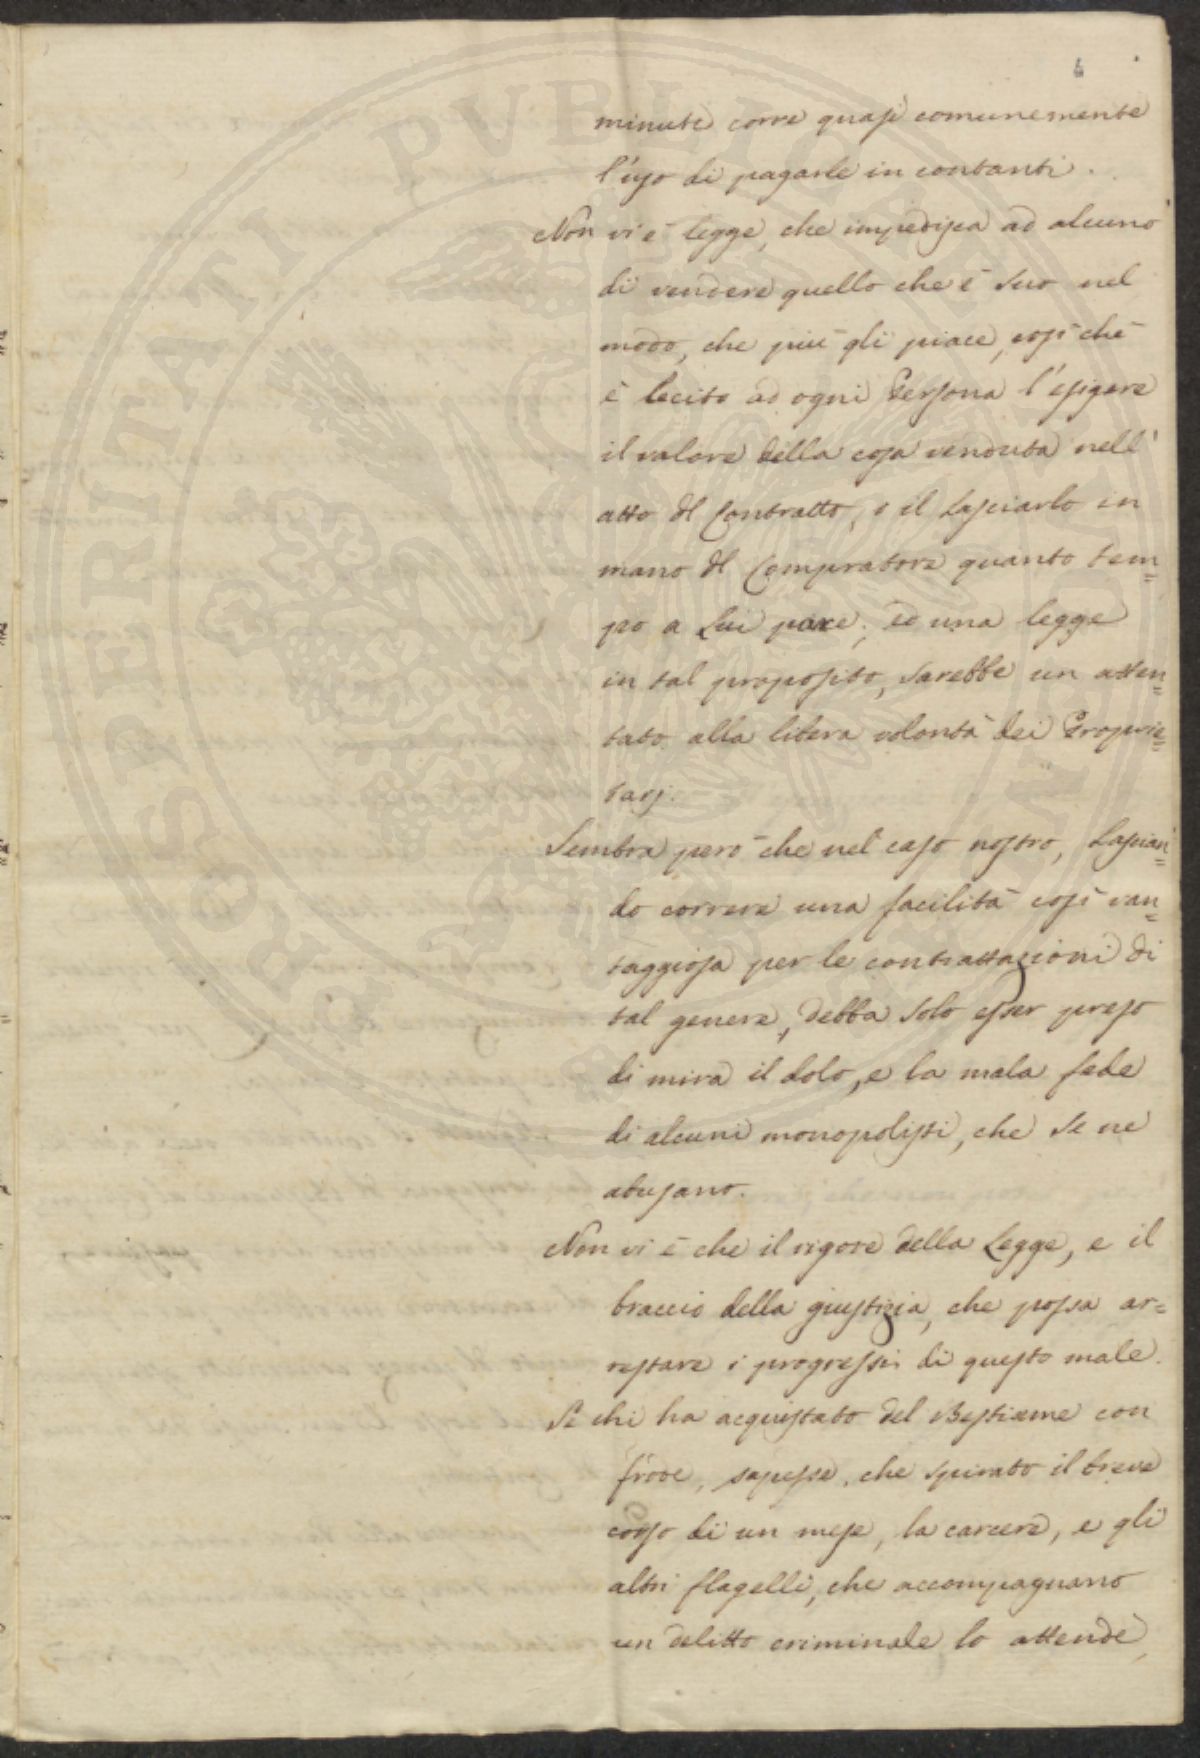 4
minute corre quasi comunemente
l'uso di pagarle in contanti.
Non vi è legge, che impedisca ad alcuno
di vendere quello che è suo nel
modo, che più gli piace, così che
è lecito ad ogni Persona l'esigere
il valore della cosa venduta nell'
atto dl Contratto, o il lasciarlo in
mano dl Compratore quanto tem=
po a Lui pare; ed una legge
in tal proposito, sarebbe un atten=
tato alla libera volontà dei Proprie=
tarj.
Sembra però che nel caso nostro, lascian=
do correre una facilità così van=
taggiosa per le contrattazioni di
tal genere, debba solo esser preso
di mira il dolo, e la mala fede
di alcuni monopolisti, che se ne
abusano.
Non vi è che il rigore della Legge, e il
braccio della giustizia, che possa ar=
restare i progressi di questo male.
Se chi ha acquistato del Bestiame con
frode, sapesse, che spirato il breve
corso di un mese, la carcere, e gli
altri flagelli, che accompagnano
un delitto criminale lo attende,
PROSPERITATI PVBLICAE